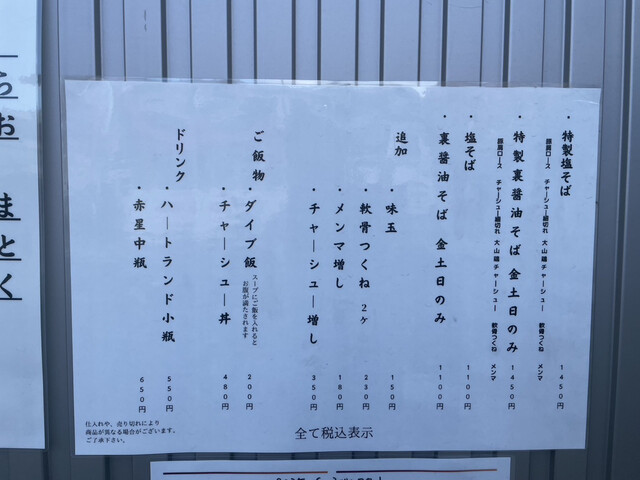 ・特製塩そば 1450円
豚肩ロース チャーシュー細切れ 大山鶏チャーシュー 軟骨つくね メンマ
・特製裏醤油そば 金土日のみ 1450円
豚肩ロース チャーシュー細切れ 大山鶏チャーシュー 軟骨つくね メンマ
・塩そば 1100円
・裏醤油そば 金土日のみ 1100円
追加
・味玉 150円
・軟骨つくね 2ケ 230円
・メンマ増し 180円
・チャーシュー増し 350円
ご飯物
・ダイブ飯 200円
スープにご飯を入れると
お腹が満たされます
・チャーシュー丼 480円
ドリンク
・ハートランド小瓶 550円
・赤星中瓶 650円
仕入れや、売り切れにより
商品が異なる場合がございます。
ご了承下さい。
全て税込表示
らぉ まとく